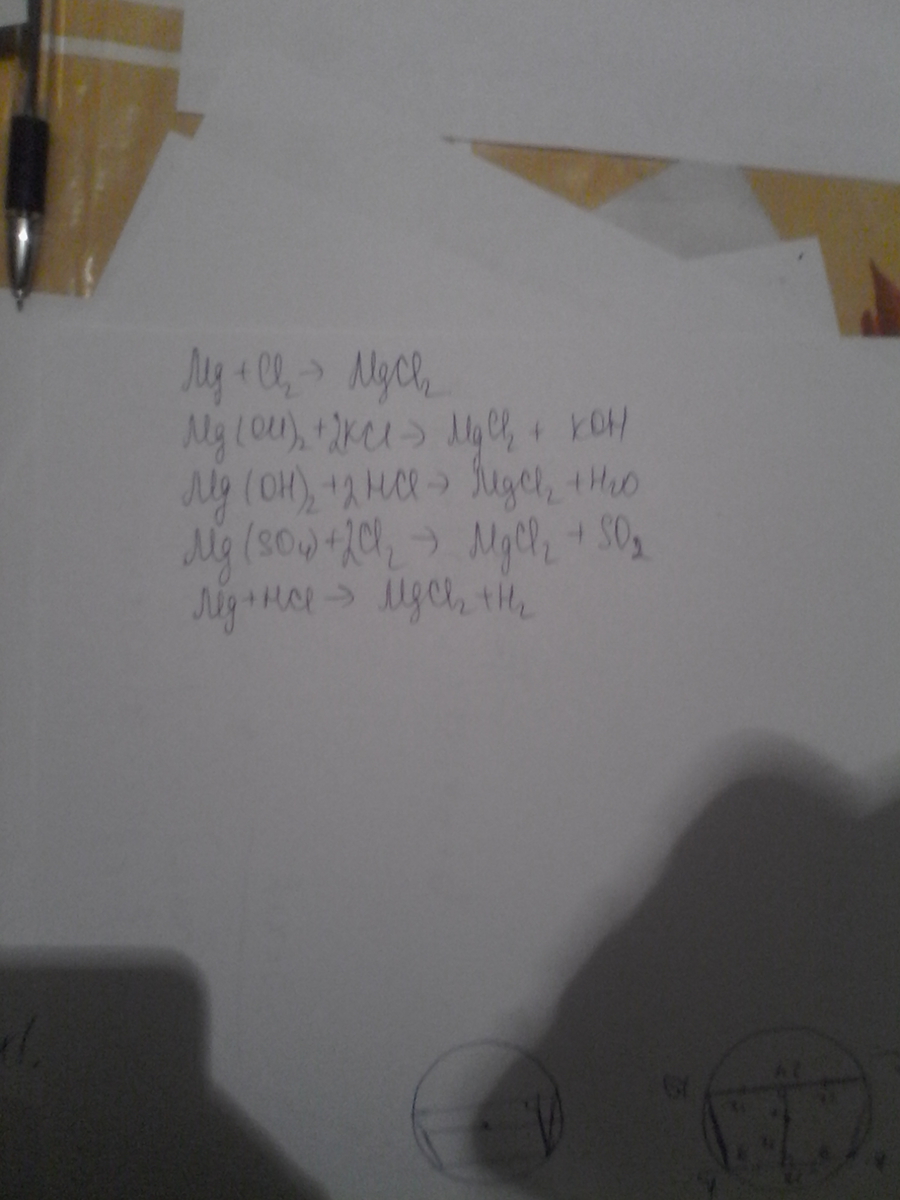 Mg + Cl₂ → MgCl₂
Mg(OH)₂ + 2KCl → MgCl₂ + KOH
Mg(OH)₂ + 2HCl → MgCl₂ + H₂O
Mg(SO₄) + 2Cl₂ → MgCl₂ + SO₂
Mg + HCl → MgCl₂ + H₂